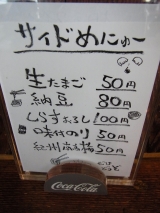 サイドめにゅー
生たまご 50円
納豆 80円
しらすおろし 100円
味付のり 50円
紀州南高梅 50円
Coca-Cola